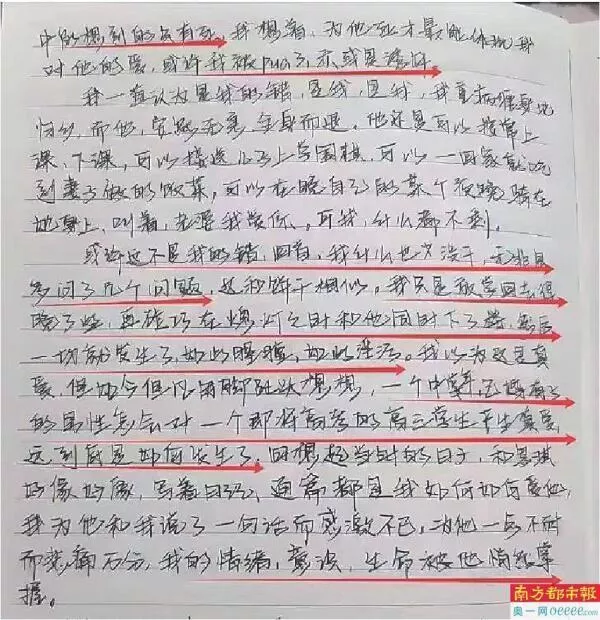 中的想到的只有死。我想着，为他死才最能体现我
对他的爱，或许我被pua了，亦或是
我一直认为是我的错，是我，是我，我
而他，完好无害，全身而退。他还是可以接常上
课，下课，可以接送儿子上学围棋，可以一回家就吃
到妻子做的饭菜，可以在晚自己的某个夜晚骑在
她身上，叫着，可我，什么都不剩。
或许这不是我的错，回首，我什么也没干，无非是
多问了几个问题，我只是放学回去得
晚了些，再碰巧在熄灯之时和他同时下了楼，然后
一切就发生了，如此暧昧，如此生活。我以为这是真
爱，但如今但凡用脚趾头想想，一个中年，已婚有子
的男性怎会对一个即将高考的高三学生产生真爱，
这到底是如何发生了，回想起当时的日子，和思琪
好像好像，写着日记，通篇都是我如何如何爱他，
我为他和我说了一句话而感激不已，为他一点不耐
而悲痛万分，我的情绪，意识，生命被他悄然掌
握。
南方都市报
奥一网oeeee.com